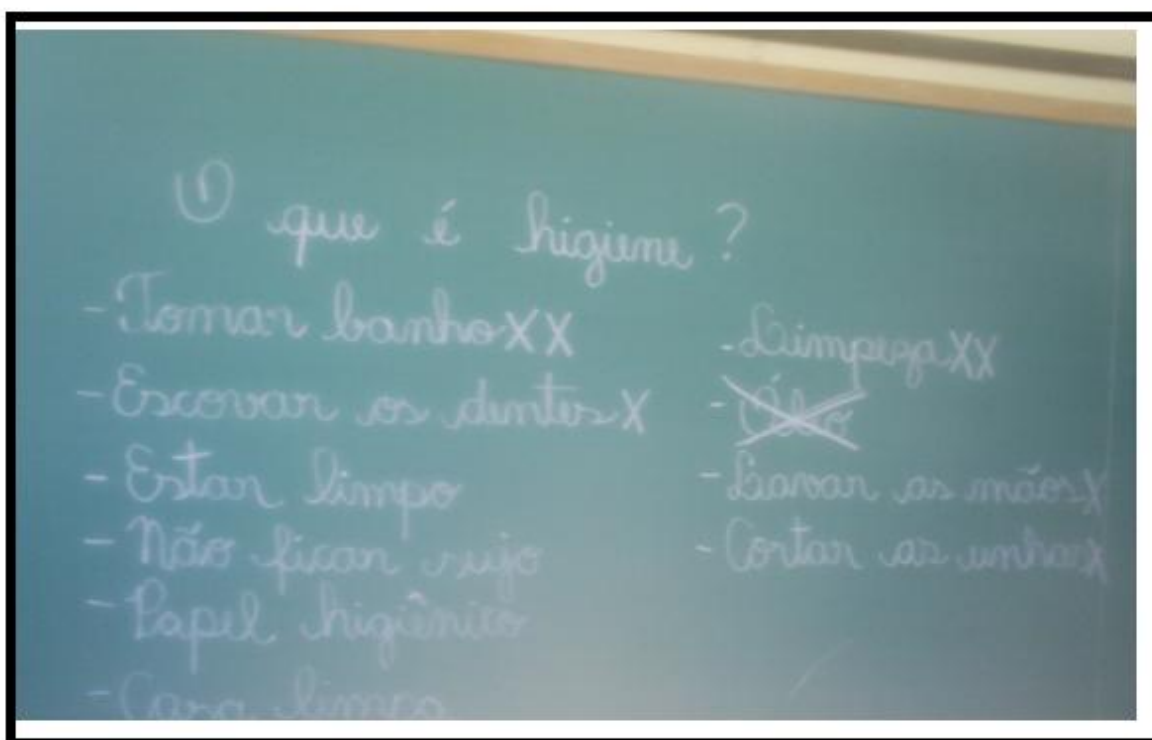 O que é higiene?
- Tomar banho XX
- Escovar os dentes X
- Estar limpo
- Não ficar sujo
- Papel higiênico
- limpa
- Limpeza XX
- Lavar as mãos X
- Cortar as unhas X